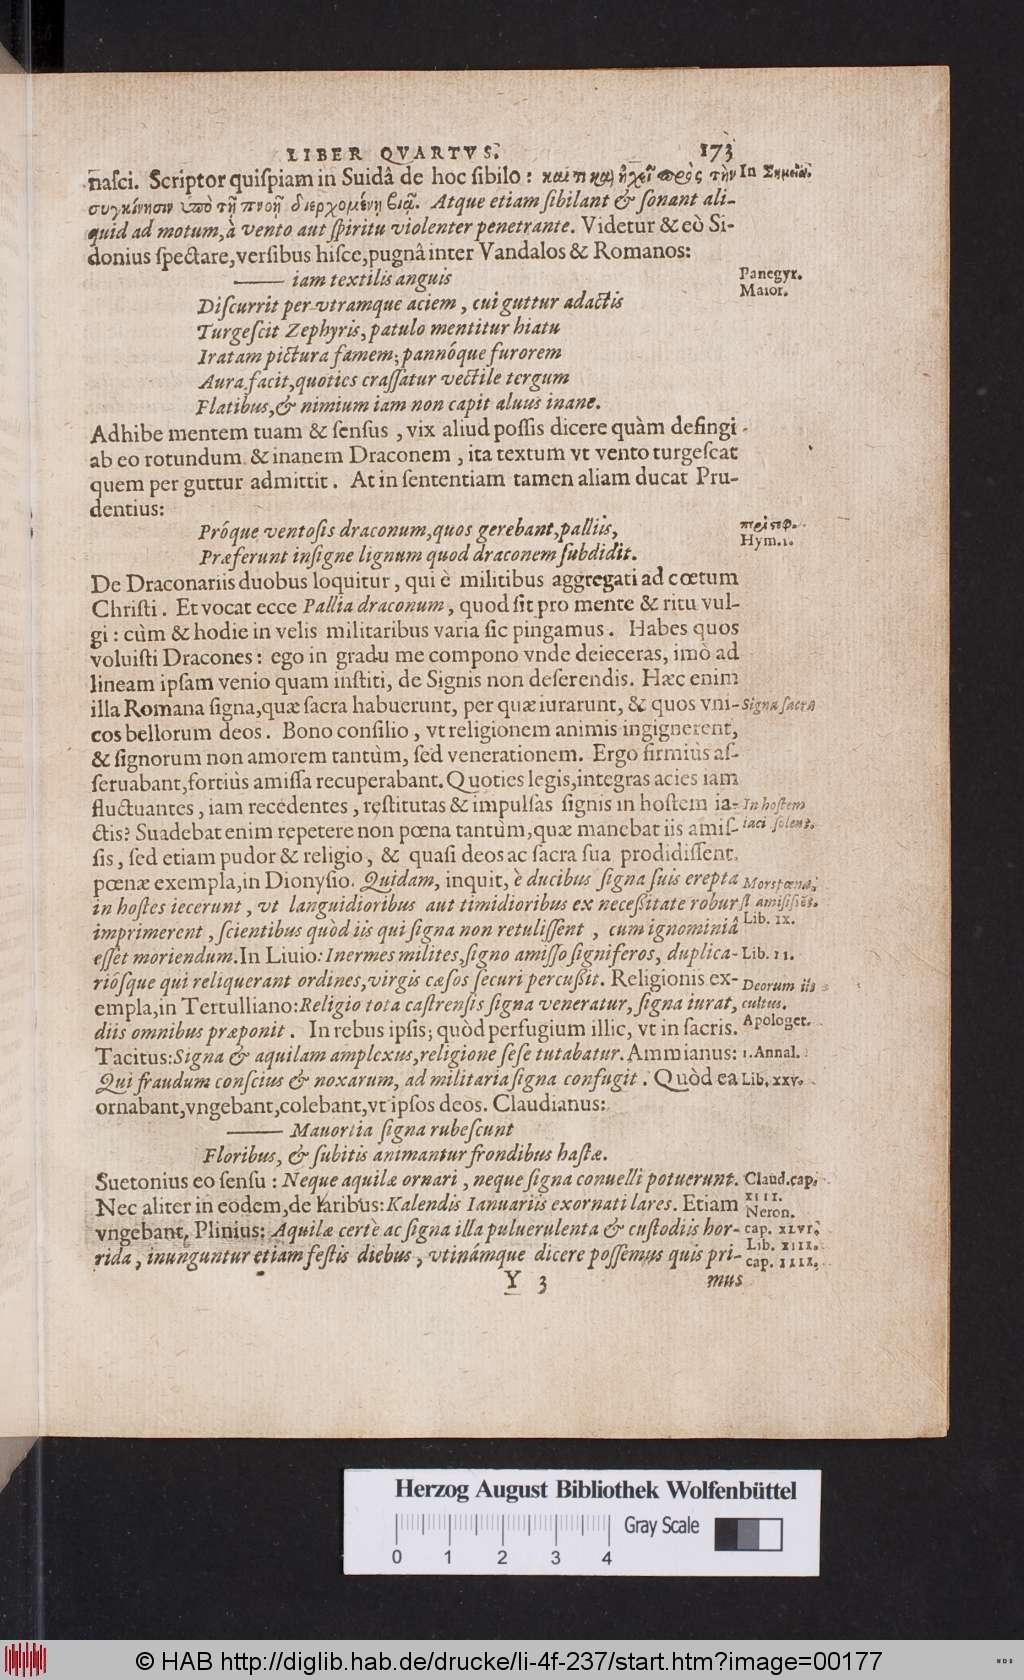 LIBER QVARTVS. 173
naſci. Scriptor quiſpiam in Suidâ de hoc ſibilo: καί τι καὶ ἠχεῖ πρὸς τὴν
In Σημεῖα.
συγκίνησιν ὑπὸ τῇ πνοῇ διερχομένῃ βίᾳ. Atque etiam ſibilant & ſonant ali-
quid ad motum, à vento aut ſpiritu violenter penetrante. Videtur & eò Si-
donius ſpectare, verſibus hiſce, pugnâ inter Vandalos & Romanos:
—— iam textilis anguis
Panegyr.
Maior.
Diſcurrit per vtramque aciem, cui guttur adactis
Turgeſcit Zephyris, patulo mentitur hiatu
Iratam pictura famem; pannóque furorem
Aura facit, quoties craſſatur vectile tergum
Flatibus, & nimium iam non capit aluus inane.
Adhibe mentem tuam & ſenſus, vix aliud poſſis dicere quàm defingi
ab eo rotundum & inanem Draconem, ita textum vt vento turgeſcat
quem per guttur admittit. At in ſententiam tamen aliam ducat Pru-
dentius:
Próque ventoſis draconum, quos gerebant, palliis,
περὶ στεφ.
Hym. 1.
Præferunt inſigne lignum quod draconem ſubdidit.
De Draconariis duobus loquitur, qui è militibus aggregati ad cœtum
Chriſti. Et vocat ecce Pallia draconum, quod ſit pro mente & ritu vul-
gi: cùm & hodie in velis militaribus varia ſic pingamus. Habes quos
voluiſti Dracones: ego in gradu me compono vnde deieceras, imò ad
lineam ipſam venio quam inſtiti, de Signis non deſerendis. Hæc enim
illa Romana ſigna, quæ ſacra habuerunt, per quæ iurarunt, & quos vni-
Signa ſacra
cos bellorum deos. Bono conſilio, vt religionem animis ingignerent,
& ſignorum non amorem tantùm, ſed venerationem. Ergo firmiùs aſ-
ſeruabant, fortiùs amiſſa recuperabant. Quoties legis, integras acies iam
fluctuantes, iam recedentes, reſtitutas & impulſas ſignis in hoſtem ia-
In hoſtem
iaci ſolent.
ctis? Suadebat enim repetere non pœna tantùm, quæ manebat iis amiſ-
ſis, ſed etiam pudor & religio, & quaſi deos ac ſacra ſua prodidiſſent.
pœnæ exempla, in Dionyſio. Quidam, inquit, è ducibus ſigna ſuis erepta
Mors pœna,
in hoſtes iecerunt, vt languidioribus aut timidioribus ex neceßitate robur
ſi amiſiſſēt.
Lib. IX.
imprimerent, ſcientibus quòd iis qui ſigna non retuliſſent, cum ignominiâ
eſſet moriendum. In Liuio: Inermes milites, ſigno amiſſo ſigniferos, duplica-
Lib. II.
rióſque qui reliquerant ordines, virgis cæſos ſecuri percußit. Religionis ex-
Deorum iis
cultus.
empla, in Tertulliano: Religio tota caſtrenſis ſigna veneratur, ſigna iurat,
Apologet.
diis omnibus præponit. In rebus ipſis; quòd perfugium illic, vt in ſacris.
Tacitus: Signa & aquilam amplexus, religione ſeſe tutabatur. Ammianus:
1. Annal.
Qui fraudum conſcius & noxarum, ad militaria ſigna confugit. Quòd ea
Lib. XXV.
ornabant, vngebant, colebant, vt ipſos deos. Claudianus:
—— Mauortia ſigna rubeſcunt
Floribus, & ſubitis animantur frondibus haſtæ.
Suetonius eo ſenſu: Neque aquilæ ornari, neque ſigna conuelli potuerunt.
Claud. cap.
XIII.
Nec aliter in eodem, de laribus: Kalendis Ianuariis exornati lares. Etiam
Neron.
cap. XLVI.
vngebant, Plinius: Aquilæ certè ac ſigna illa puluerulenta & cuſtodiis hor-
Lib. XIII.
cap. IIII.
rida, inunguntur etiam feſtis diebus, vtinámque dicere poſſemus quis pri-
Y 3 mus
Herzog August Bibliothek Wolfenbüttel
Gray Scale
0 1 2 3 4
© HAB http://diglib.hab.de/drucke/li-4f-237/start.htm?image=00177